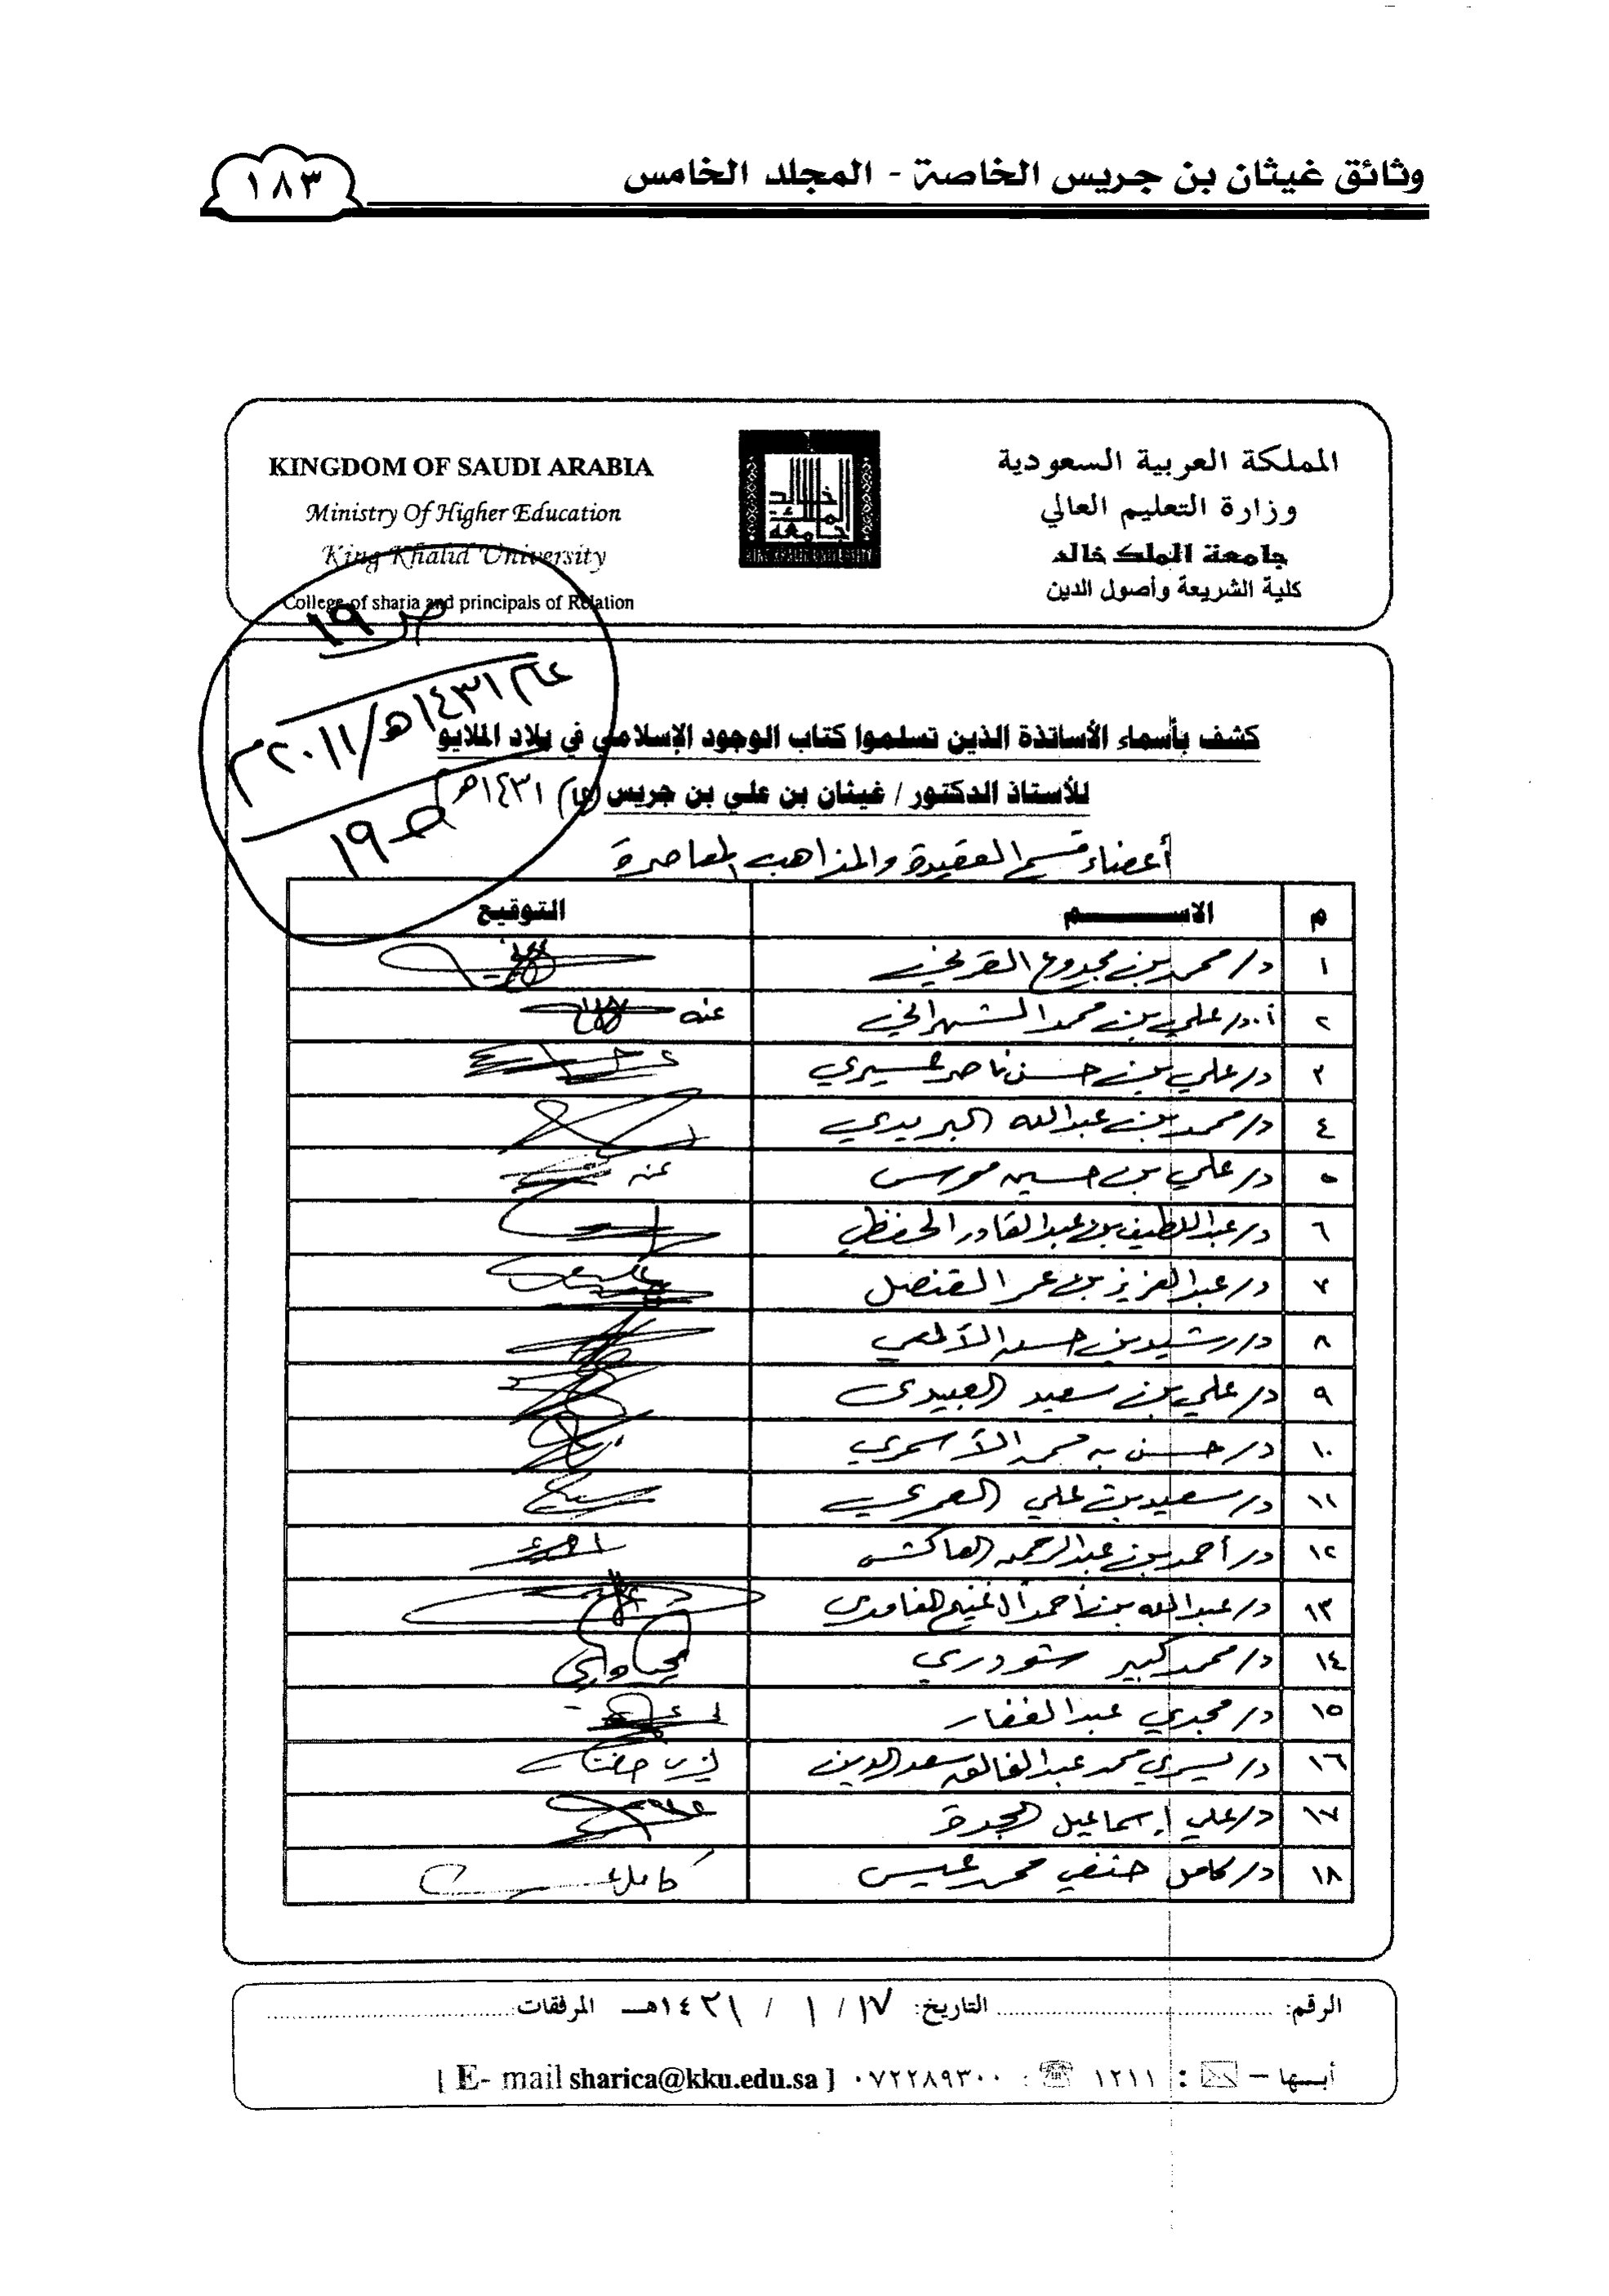 وثائق غيثان بن جريس الخاصة - المجلد الخامس
١٨٣
المملكة العربية السعودية
وزارة التعليم العالي
جامعة الملك خالد
كلية الشريعة وأصول الدين
KINGDOM OF SAUDI ARABIA
Ministry Of Higher Education
King Khalid University
College of sharia and principals of Relation
جامعة الملك خالد
KING KHALID UNIVERSITY
ص ١٩
١٤٣١هـ/٢٠١١م
ص ١٩
كشف بأسماء الأساتذة الذين تسلموا كتاب الوجود الإسلامي في بلاد الملايو
للأستاذ الدكتور / غيثان بن علي بن جريس ١٤٣١هـ
أعضاء قسم العقيدة والمذاهب المعاصرة
م الاســــــم التوقيع
١ د/ محمد بن مجدوع القرني
٢ أ.د/ علي بن محمد الشهراني عنه
٣ د/ علي بن حسن ناصر عسيري
٤ د/ محمد بن عبدالله البريدي
٥ د/ علي بن حسين موسى عنه
٦ د/ عبداللطيف بن عبدالقادر الحفظي
٧ د/ عبدالعزيز بن عمر القنصل
٨ د/ رشيد بن حسن الألمعي
٩ د/ علي بن سعيد العبيدي
١٠ د/ حسن بن محمد الأسمري
١١ د/ سعيد بن علي العمري
١٢ د/ أحمد بن عبدالرحمن العاكش
١٣ د/ عبدالله بن أحمد آل غنيم الغامدي
١٤ د/ محمد كبير شودري
١٥ د/ مجدي عبدالغفار
١٦ د/ يسري محمد عبدالخالق سعدالدين
١٧ د/ علي إسماعيل
١٨ د/ كامل حنفي محمد عيسى كامل
الرقم: التاريخ: ١٧ / ١ / ١٤٣١هـ المرفقات:
أبــها – : ١٢١١ : ٠٧٢٢٨٩٣٠٠ [ E- mail sharica@kku.edu.sa ]